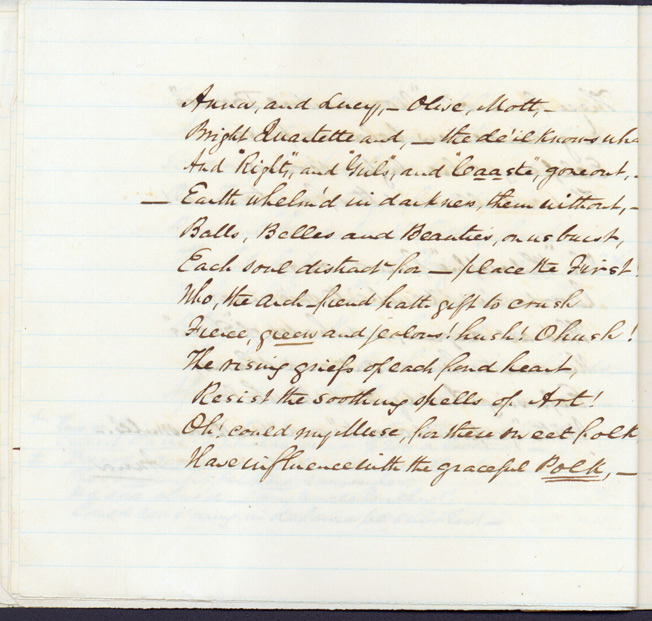 Anna, and Lucy, – Olive, Mott, –
Bright Quartette and, – the de'il knows wha
And "Rights", and "Guls", and "Caaste", gone out, –
— Earth whelm'd in darkness, them without, –
Balls, Belles and Beauties, on us burst,
Each soul distract for – place the First!
Who, the Arch-fiend hath gift to crush
Fierce, green and jealous! hush! O hush!
The rising griefs of each fond heart,
Resist the soothing spells of Art!
Oh! could my Muse, for these sweet folk
Have influence with the graceful Polk, –